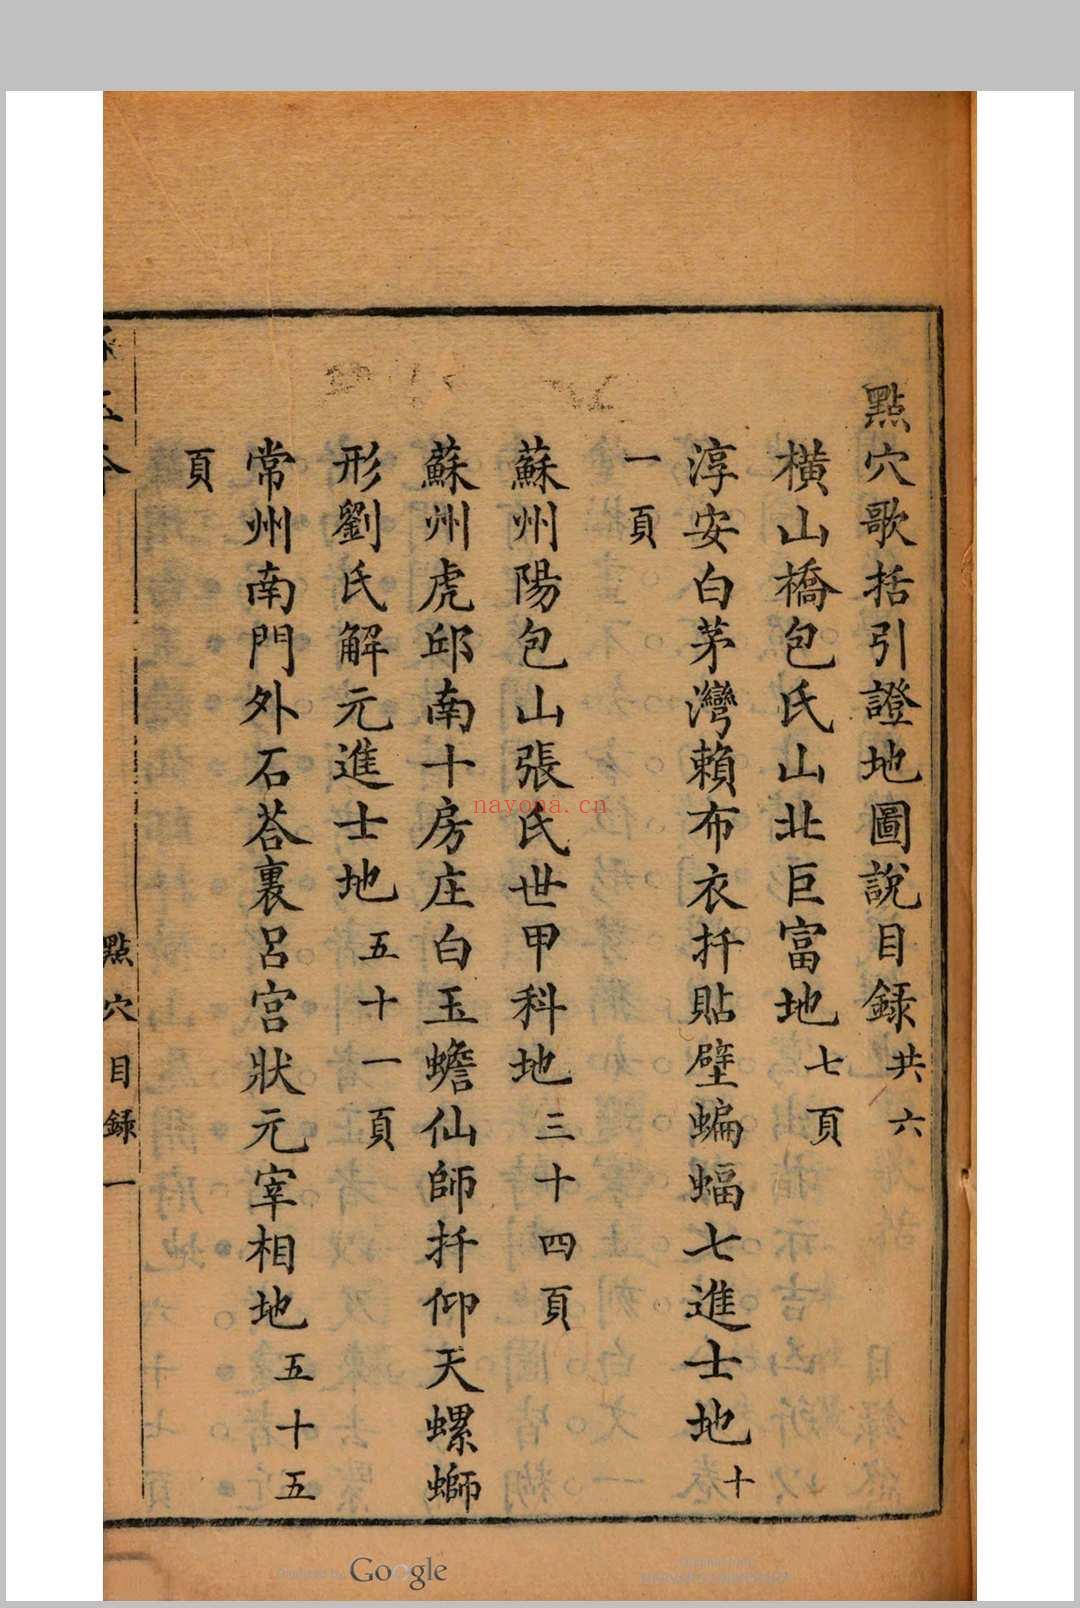 點穴歌括引證地圖說目録共六
橫山橋包氏山北巨富地七頁
淳安白茅灣賴布衣扦貼壁蝙蝠七進士地十
一頁
蘇州陽包山張氏世甲科地三十四頁
蘇州虎邱南十房庄白玉蟾仙師扦仰天螺螄
形劉氏解元進士地五十一頁
常州南門外石荅裏呂宮狀元宰相地五十五
頁
點穴目録一
nayona.cn
Google